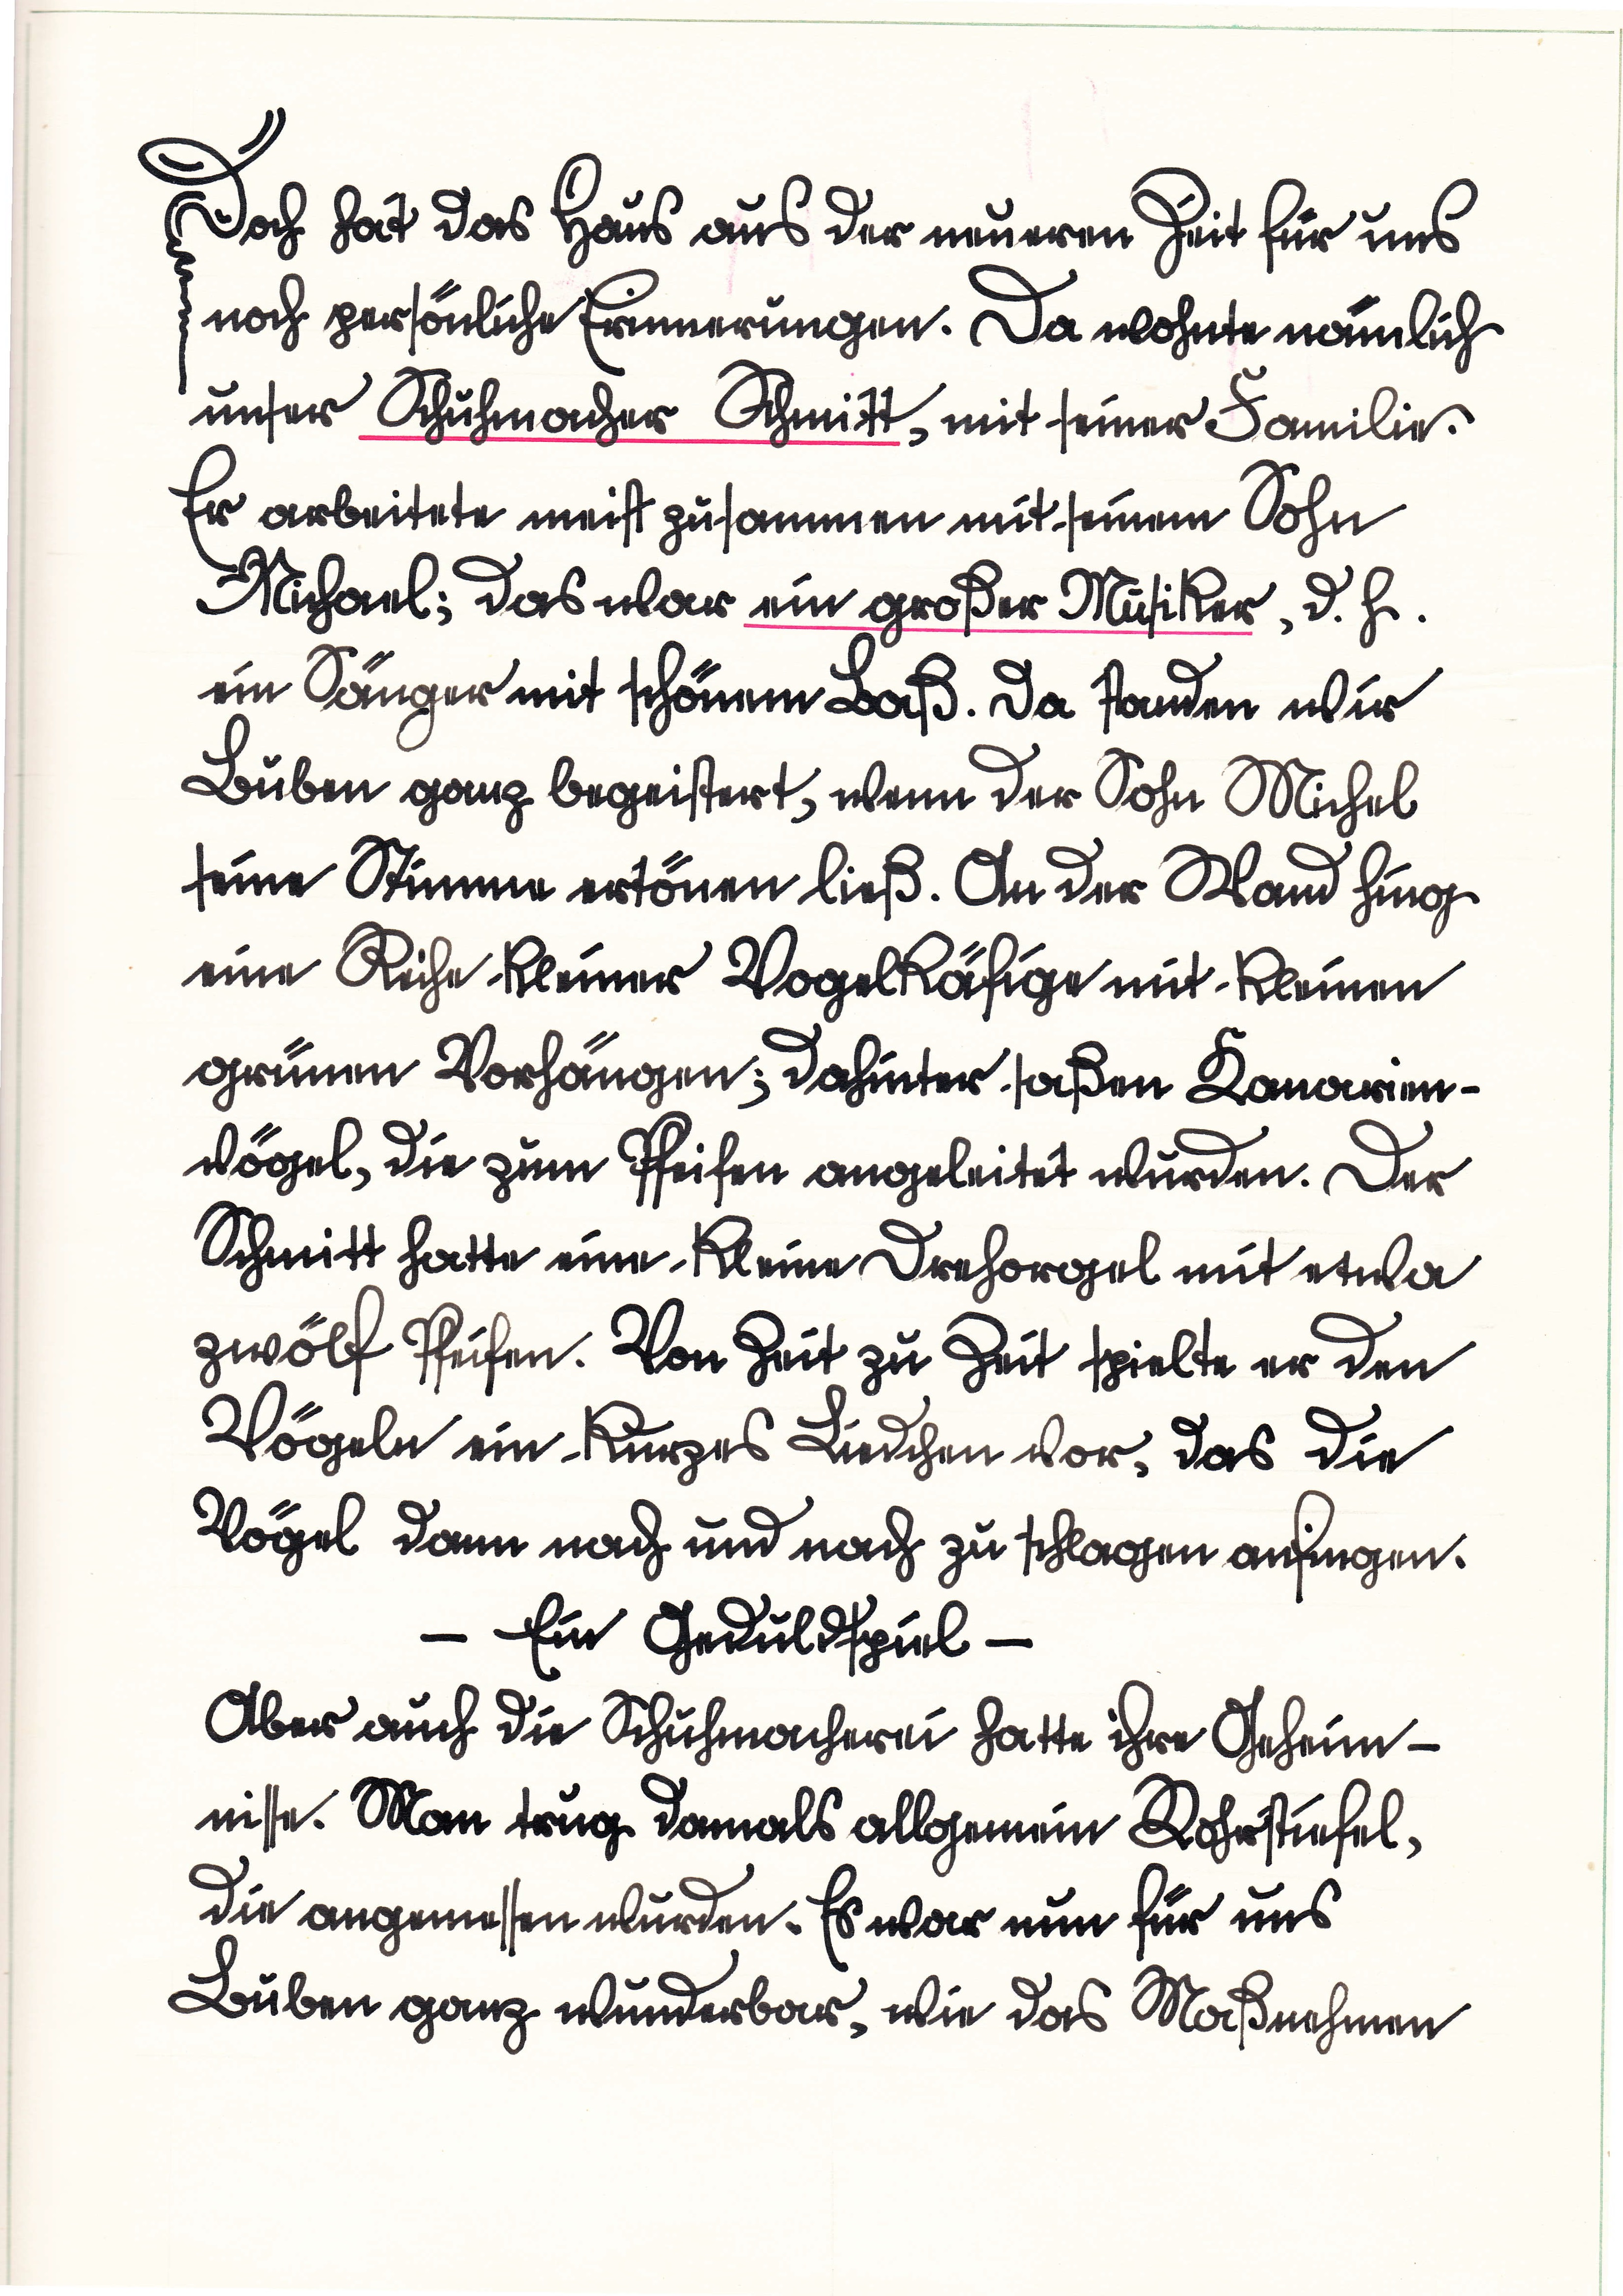 Doch hat das Haus aus der neueren Zeit für uns
noch persönliche Erinnerungen. Da wohnte nämlich
unser Schuhmacher Schmitt, mit seiner Familie.
Er arbeitete meist zusammen mit seinem Sohn
Michael; das war ein großer Musiker, d. h.
ein Sänger mit schönem Baß. Da standen wir
Buben ganz begeistert, wenn der Sohn Michel
seine Stimme ertönen ließ. An der Wand hing
eine Reihe kleiner Vogelkäfige mit kleinen
grünen Vorhängen; dahinter saßen Kanarien-
vögel, die zum Pfeifen angeleitet wurden. Der
Schmitt hatte eine kleine Drehorgel mit etwa
zwölf Pfeifen. Von Zeit zu Zeit spielte er den
Vögeln ein kurzes Liedchen vor, das die
Vögel dann nach und nach zu schlagen anfingen.
– Ein Geduldspiel –
Aber auch die Schuhmacherei hatte ihre Geheim-
nisse. Man trug damals allgemein Rohrstiefel,
die angemessen wurden. Es war nun für uns
Buben ganz wunderbar, wie das Maßnehmen